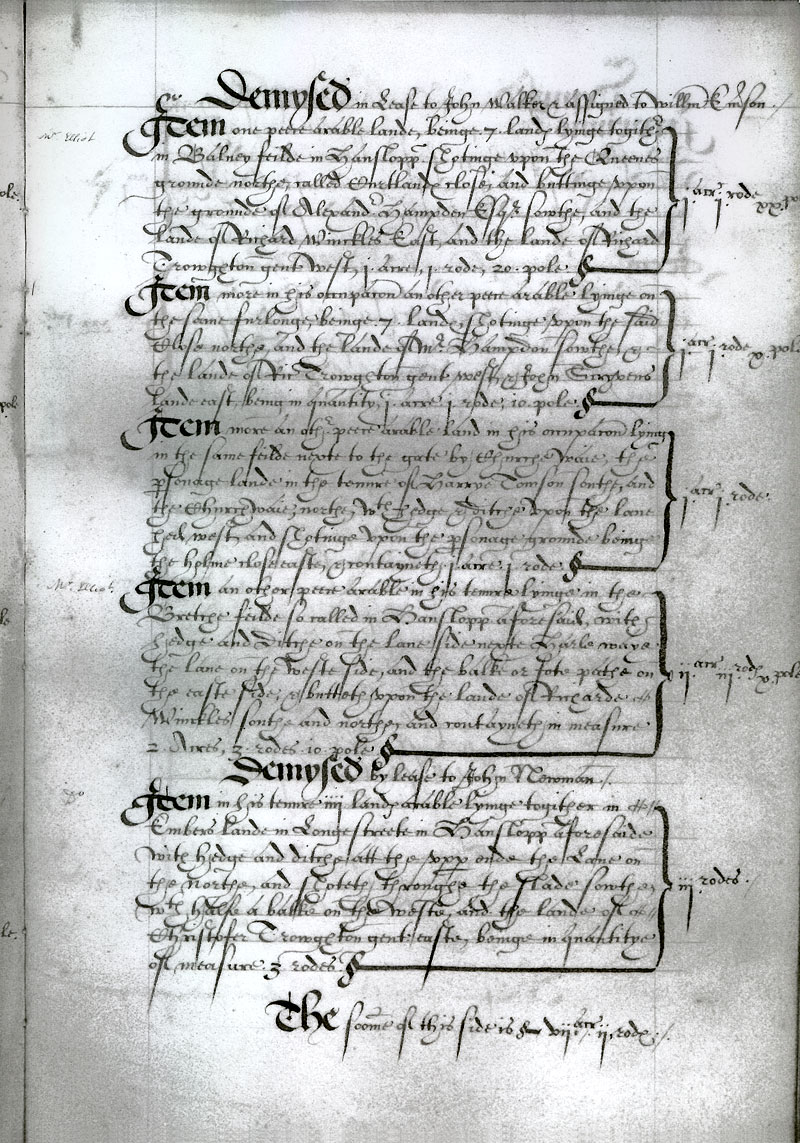 Demysed in Lease to John Walker & assigned to Willm
Mr Elliot
Item one peece arable lande, beinge .7. land lyinge togithr
in Balney feilde in Hanslopp shotinge upon the Queenes
grounde northe, called close, and buttinge upon
the grounde of Alexandr Hampden Esqr sowthe, and the
lande of Richard Winckles East, and the lande of Richard
Trowghton gent West, j. acre, j. rode, 20. pole
j. acr j. rode xx. po
Item more in his occupacon an other peece arable lyinge on
the same furlonge, beinge .7. lande, shotinge upon the said
Close northe, and the lande of Mr Hampden sowthe, &
the lande of Ric Trowghton gent west, & John
lande east being in quantity, j. acre j. rode, 10. pole
j. acr j. rode x. pole
Item more an othr peece arable land in his occupacon lying
in the same feilde nexte to the gate by Churche waie, the
psonage lande in the tenure of Harrye Towson southe, and
the Church waie, northe, wth hedge & ditche upon the lane
hed, west, and shotinge upon the psonage grounde beinge
the holme close easte, & contayneth, j. acre j. rode
j. acr j. rode.
Mr Elliot
Item an other peece arable in his tenure lyinge in the
Bretche feilde so called in Hanslopp aforesaid, with
hedge and Ditche on the lane side nexte Harle waye
the lane on the weste side, and the balke or fote pathe on
the easte side, & butteth upon the lande of Richarde
Winckles southe and northe, and contayneth in measure
2. Acres, 3. rodes. 10. pole
ij. acr iij. rod x. pole
Demysed by lease to John Newman./.
Item in his tenure iiij land arable lyinge togither in
Embers lande in Longe streete in Hanslopp aforesaide
with Hedge and ditche, att the upp ende the Lane on
the Northe, and shoteth throughe the slade sowthe,
wth halfe a balke on the weste, and the lande of
Christofer Trowghton gent easte, beinge in quantitye
of measure .3. rodes
iij. rodes.
The soome of this side is vij acr ij. rod./.